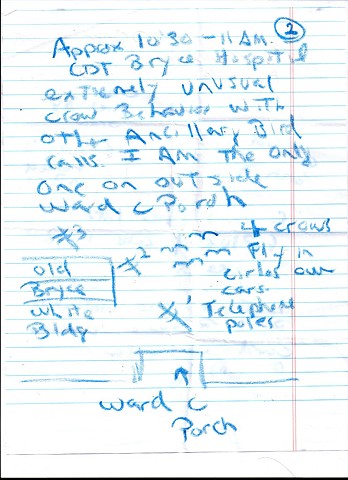 2
Approx 10:30 - 11 AM.
CDT Bryce Hospital
extremely unusual
crow Behavior with
other Ancillary Bird
calls. I Am the only
one on outside
ward C Porch
X3 4 crows
X2 Fly in
old circles over
Bryce cars.
white X1 Telephone
Bldg poles
ward C
Porch